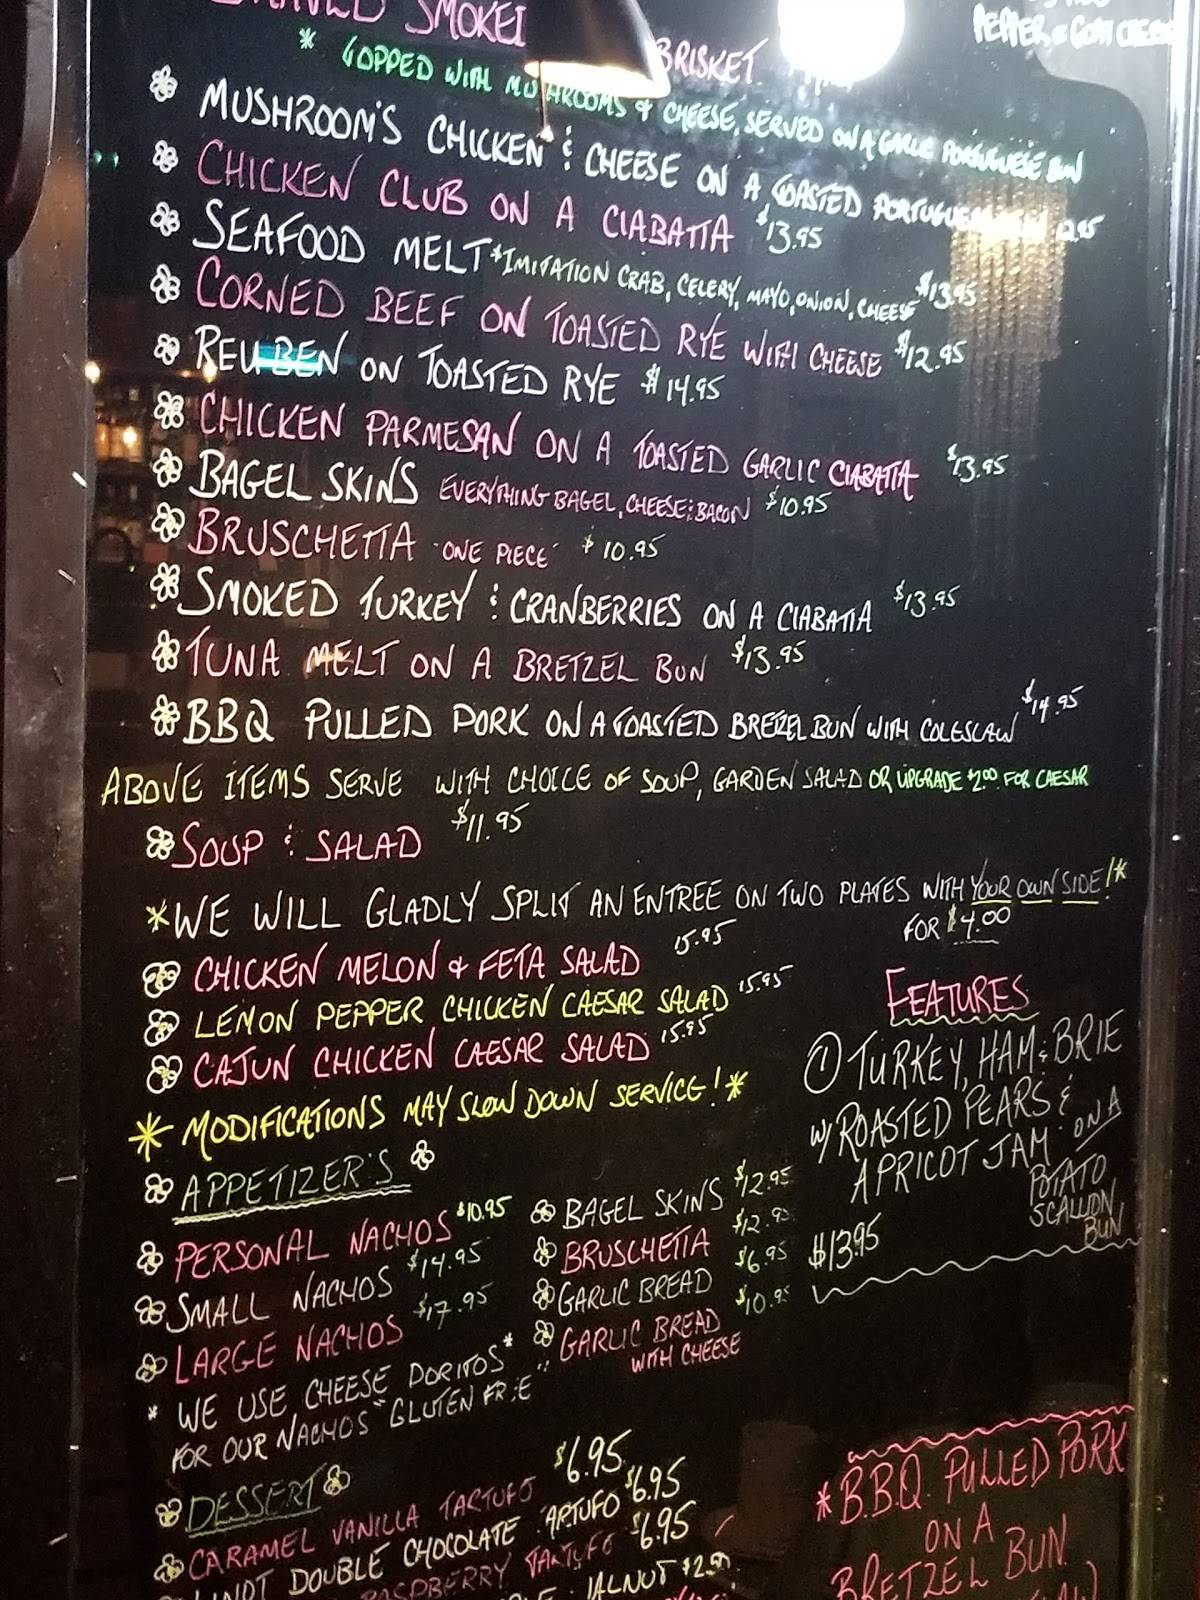 SMOKED BRISKET
* TOPPED WITH MUSHROOMS & CHEESE, SERVED ON A GARLIC PORTUGUESE BUN
PEPPER & GOAT CHEESE
MUSHROOM'S CHICKEN & CHEESE ON A TOASTED PORTUGUESE 12.95
CHICKEN CLUB ON A CIABATTA $13.95
SEAFOOD MELT *IMITATION CRAB, CELERY, MAYO, ONION, CHEESE $13.95
CORNED BEEF ON TOASTED RYE WITH CHEESE $12.95
REUBEN ON TOASTED RYE $14.95
CHICKEN PARMESAN ON A TOASTED GARLIC CIABATTA $13.95
BAGEL SKINS EVERYTHING BAGEL, CHEESE & BACON $10.95
BRUSCHETTA "ONE PIECE" $10.95
SMOKED TURKEY & CRANBERRIES ON A CIABATTA $13.95
TUNA MELT ON A BRETZEL BUN $13.95
BBQ PULLED PORK ON A TOASTED BRETZEL BUN WITH COLESLAW $14.95
ABOVE ITEMS SERVE WITH CHOICE OF SOUP, GARDEN SALAD OR UPGRADE $2.00 FOR CAESAR
SOUP & SALAD $11.95
*WE WILL GLADLY SPLIT AN ENTREE ON TWO PLATES WITH YOUR OWN SIDE!*
FOR $4.00
CHICKEN MELON & FETA SALAD 15.95
LEMON PEPPER CHICKEN CAESAR SALAD 15.95
CAJUN CHICKEN CAESAR SALAD 15.95
* MODIFICATIONS MAY SLOW DOWN SERVICE! *
FEATURES
① TURKEY, HAM & BRIE
W/ ROASTED PEARS &
APRICOT JAM ON A
POTATO
SCALLION
BUN
$13.95
APPETIZER'S
PERSONAL NACHOS $10.95
SMALL NACHOS $14.95
LARGE NACHOS $17.95
* WE USE CHEESE DORITOS *
FOR OUR NACHOS "GLUTEN FREE"
BAGEL SKINS $12.95
BRUSCHETTA $12.95
GARLIC BREAD $6.95
GARLIC BREAD $10.95
WITH CHEESE
DESSERT
CARAMEL VANILLA TARTUFO $6.95
DOUBLE CHOCOLATE TARTUFO $6.95
RASPBERRY TARTUFO $6.95
*B.B.Q. PULLED PORK
ON A
BRETZEL BUN